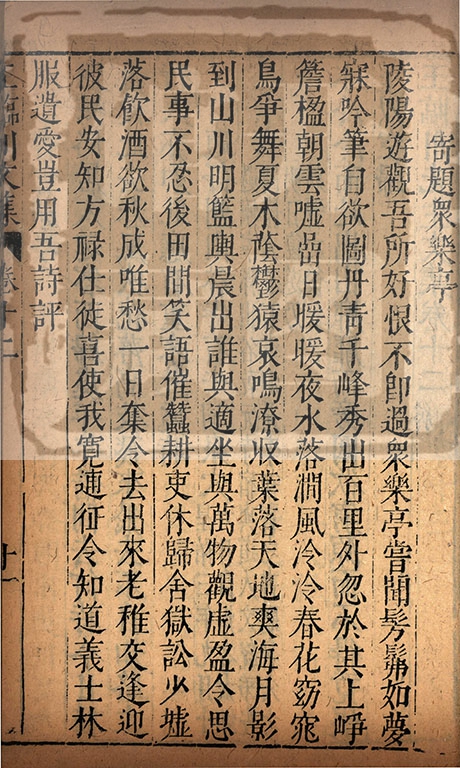 寄題衆樂亭
陵陽遊觀吾所好恨不卽過衆樂亭嘗聞髣髴如夢
寐吟筆自欲圖丹靑千峰秀出百里外忽於其上峥
簷楹朝雲噓嵒日暖暖夜水落澗風泠泠春花窈窕
鳥爭舞夏木蔭鬱猿哀鳴潦收葉落天地爽海月影
到山川明籃輿晨出誰與適坐與萬物觀虛盈令思
民事不忍後田間笑語催蠶耕吏休歸舍獄訟少墟
落飮酒欲秋成唯愁一日奪令去出來老稚交逢迎
彼民安知方祿仕徒喜使我寬逋征令知道義士林
服遺愛豈用吾詩評